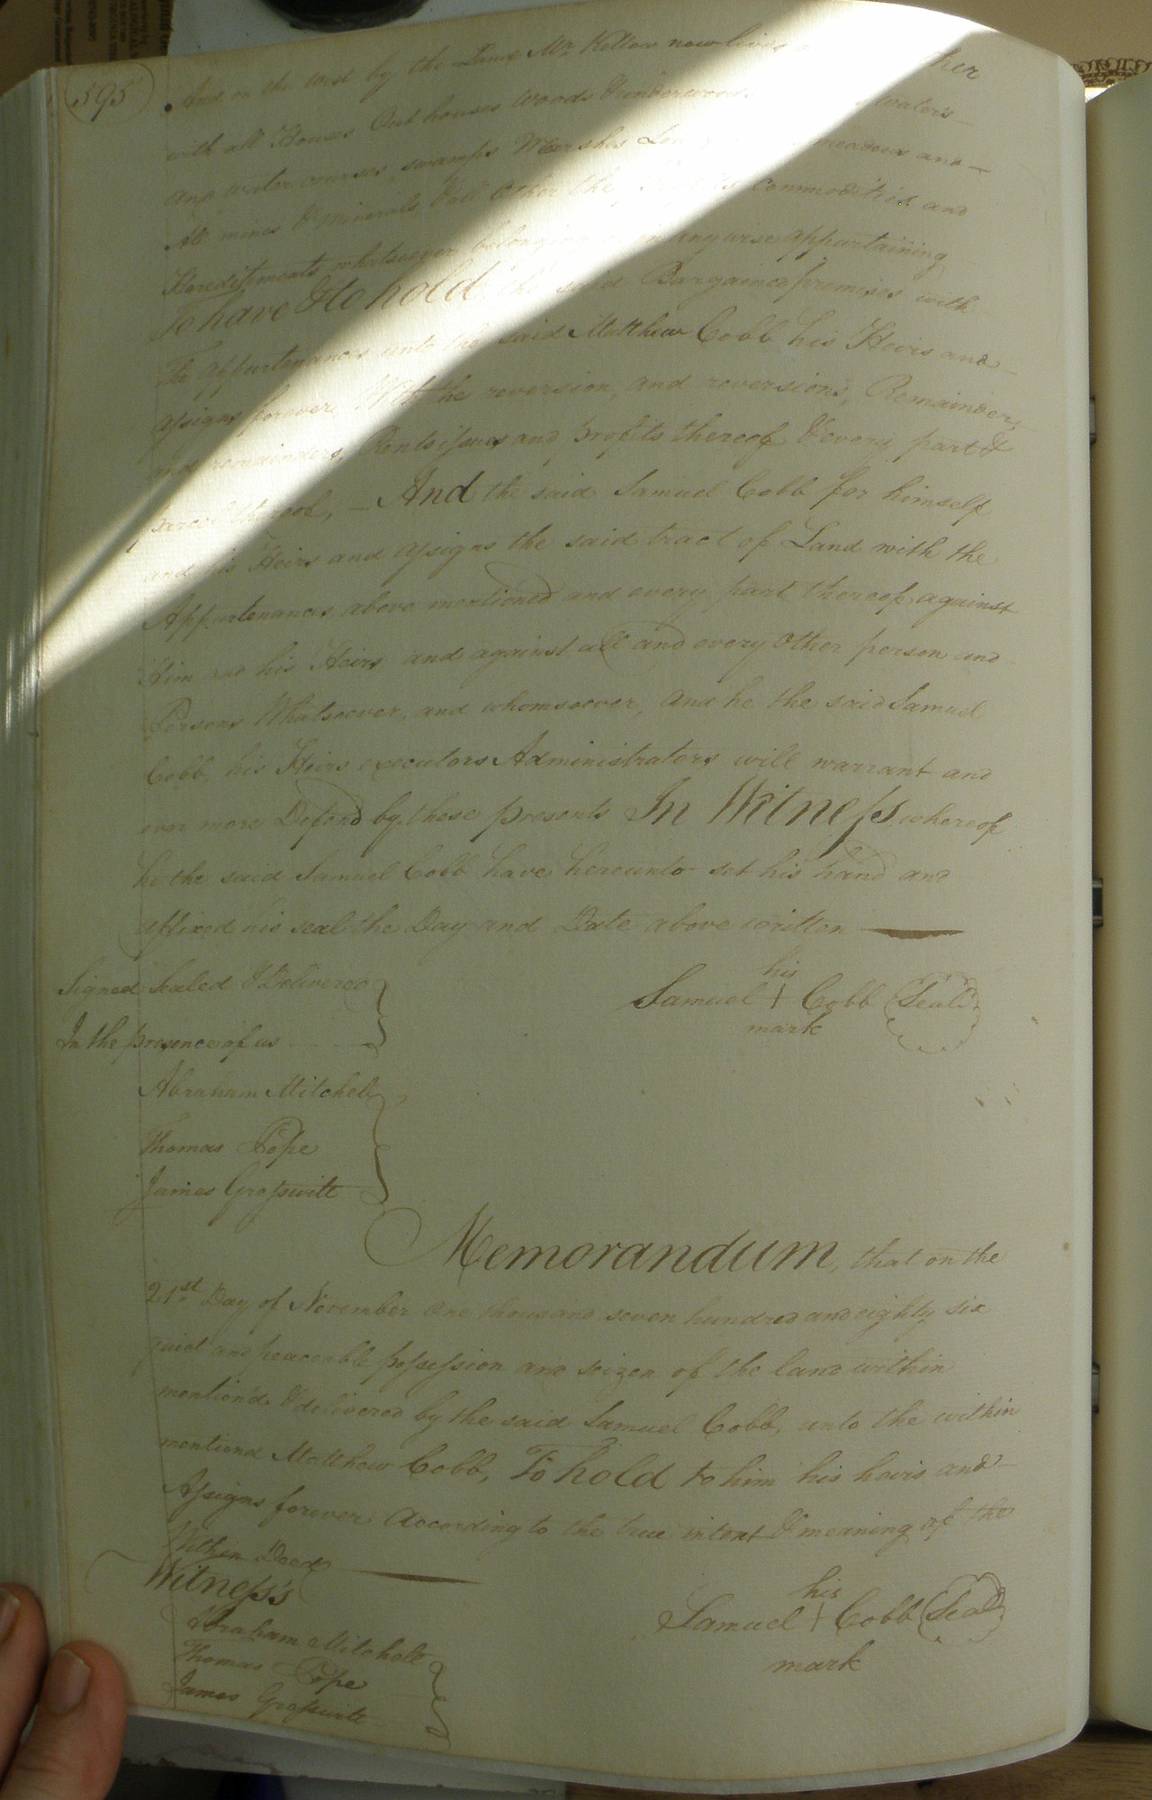 595
And on the west by the Land Mr. Kellow now lives
with all Houses Out houses Woods & underwoods waters
and water courses, swamps Marshes Low meadows and
All mines & minerals & all other the Commodities and
Hereditaments whatsoever belonging or in any wise appurtaining
To have & to hold the said Bargained premises with
the appurtenances unto the said Matthew Cobb his Heirs and
assigns forever With the reversion, and reversions, Remainder,
and remainders, Rents issues and profits thereof & every part &
parcel thereof, - And the said Samuel Cobb for himself
and his Heirs and assigns the said tract of Land with the
Appurtenances, above mentioned and every part thereof, against
Him and his Heirs and against all and every Other person and
Persons Whatsoever, and whomsoever, and he the said Samuel
Cobb, his Heirs executors Administrators will warrant and
ever more Defend by these presents In Witness whereof
he the said Samuel Cobb have hereunto set his hand and
affixed his seal the Day and Date above written
Signed Sealed & Delivered
In the presence of us
his
Samuel + Cobb (Seal)
mark
Abraham Mitchell
Thomas Pope
James Grasswitt
Memorandum, that on the
21st Day of November One thousand seven hundred and eighty six
quiet and peaceable possession and seizen of the land within
mention'd & delivered by the said Samuel Cobb, unto the within
mentiond Matthew Cobb, To hold to him his heirs and
Assigns forever According to the true intent & meaning of the
Within Deed
Witness's
his
Samuel + Cobb (Seal)
mark
Abraham Mitchell
Thomas Pope
James Grasswitt